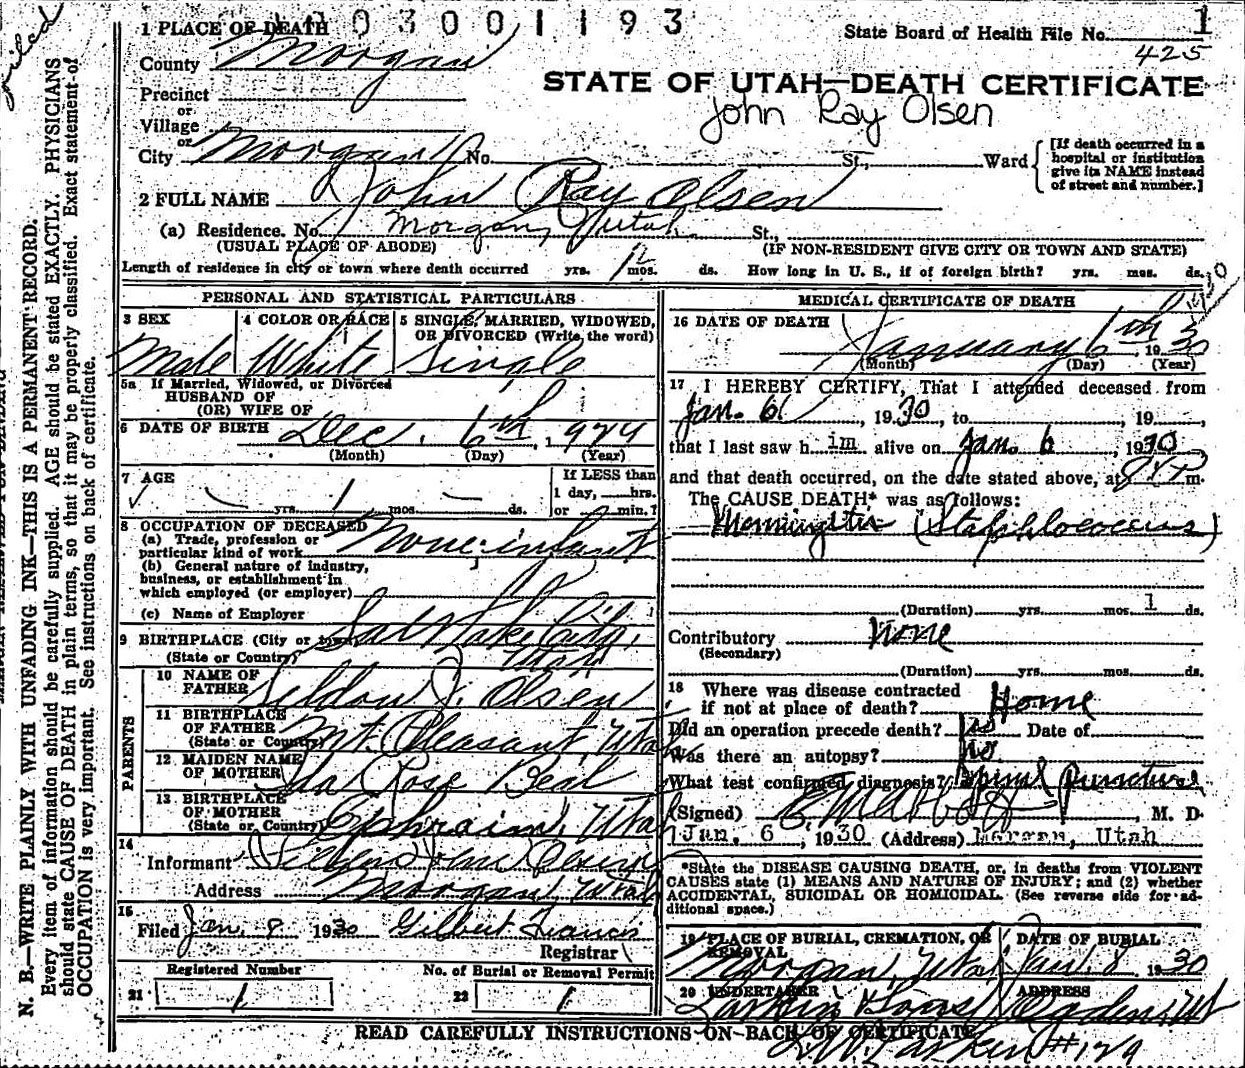 003001193
1
1 PLACE OF DEATH
State Board of Health File No.
425
County Morgan
STATE OF UTAH—DEATH CERTIFICATE
Precinct
or
John Ray Olsen
Village
or
City Morgan No. St., Ward
[If death occurred in a
hospital or institution
give its NAME instead
of street and number.]
2 FULL NAME John Ray Olsen
(a) Residence. No. Morgan, Utah St.,
(USUAL PLACE OF ABODE) (IF NON-RESIDENT GIVE CITY OR TOWN AND STATE)
Length of residence in city or town where death occurred yrs. 1 mos. ds. How long in U. S., if of foreign birth? yrs. mos. ds.
PERSONAL AND STATISTICAL PARTICULARS
3 SEX 4 COLOR OR RACE 5 SINGLE, MARRIED, WIDOWED,
OR DIVORCED (Write the word)
Male White Single
5a If Married, Widowed, or Divorced
HUSBAND OF
(OR) WIFE OF
6 DATE OF BIRTH Dec. 6th, 1929
(Month) (Day) (Year)
7 AGE
If LESS than
1 day, hrs.
yrs. 1 mos. ds. or min.?
8 OCCUPATION OF DECEASED
(a) Trade, profession or
particular kind of work None; infant
(b) General nature of industry,
business, or establishment in
which employed (or employer)
(c) Name of Employer
9 BIRTHPLACE (City or town) Salt Lake City,
(State or Country) Utah
PARENTS
10 NAME OF
FATHER Seldon J. Olsen
11 BIRTHPLACE
OF FATHER
(State or Country) Mt. Pleasant, Utah
12 MAIDEN NAME
OF MOTHER Ida Rose Beal
13 BIRTHPLACE
OF MOTHER
(State or Country) Ephraim, Utah
14
Informant Olsen
Address Morgan, Utah
15
Filed Jan. 8 1930 Gilbert Francis
Registrar
Registered Number No. of Burial or Removal Permit
21 1 22 1
MEDICAL CERTIFICATE OF DEATH
1930
16 DATE OF DEATH
January 6th, 1930
(Month) (Day) (Year)
17 I HEREBY CERTIFY, That I attended deceased from
Jan. 6, 1930, to , 19
that I last saw him alive on Jan. 6, 1930
and that death occurred, on the date stated above, at m.
The CAUSE DEATH* was as follows:
Menningitis (Staphlococcus)
(Duration) yrs. mos. 1 ds.
Contributory None
(Secondary)
(Duration) yrs. mos. ds.
18 Where was disease contracted
if not at place of death? Home
Did an operation precede death? No Date of
Was there an autopsy? No.
What test confirmed diagnosis? Spinal Puncture
(Signed) , M. D.
Jan. 6, 1930 (Address) Morgan, Utah
*State the DISEASE CAUSING DEATH, or, in deaths from VIOLENT
CAUSES state (1) MEANS AND NATURE OF INJURY; and (2) whether
ACCIDENTAL, SUICIDAL OR HOMICIDAL. (See reverse side for ad-
ditional space.)
19 PLACE OF BURIAL, CREMATION, OR
REMOVAL DATE OF BURIAL
Morgan, Utah Jan. 8 1930
20 UNDERTAKER ADDRESS
Larkin & Sons Ogden, Ut
READ CAREFULLY INSTRUCTIONS ON BACK OF CERTIFICATE
Larkin #129
N. B.—WRITE PLAINLY WITH UNFADING INK—THIS IS A PERMANENT RECORD.
Every item of information should be carefully supplied. AGE should be stated EXACTLY. PHYSICIANS
should state CAUSE OF DEATH in plain terms, so that it may be properly classified. Exact statement of
OCCUPATION is very important. See instructions on back of certificate.